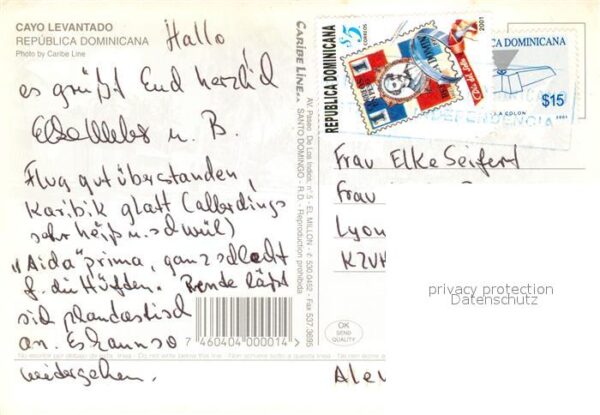 CAYO LEVANTADO
REPÚBLICA DOMINICANA
Photo by Caribe Line
Hallo
es grüßt Euch herzlich
u. B.
Flug gut überstanden,
Karibik glatt (allerdings
sehr heiß u. schwül)
"Aida" prima, ganz schlecht
f. die Hüften. Rente läßt
sich phantastisch
an. Es kann so
weitergehen.
CARIBE LINE
AV. Paseo De Los Indios, n° 5 - EL MILLON - ✆ 530 0452 - Fax 537.3695
SANTO DOMINGO - R.D. - Reproduction prohibida
7 460404 000014 >
REPUBLICA DOMINICANA
$5
CORREOS
2001
CA DOMINICANA
$15
LA COLON
2001
DEPENDENCIA
Frau Elke Seifert
Frau
Lyon
privacy protection
Datenschutz
OK
SEND
QUALITY
No escribir por debajo de esta linea - Do not write below this line